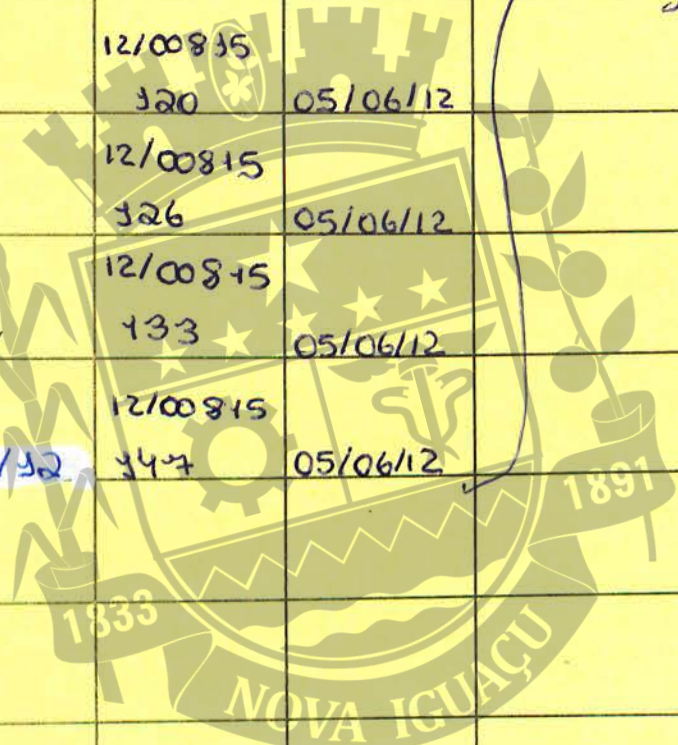 12/00815
120 05/06/12
12/00815
126 05/06/12
12/00815
133 05/06/12
12/00815
/12 147 05/06/12
1891
1833
NOVA IGUAÇU